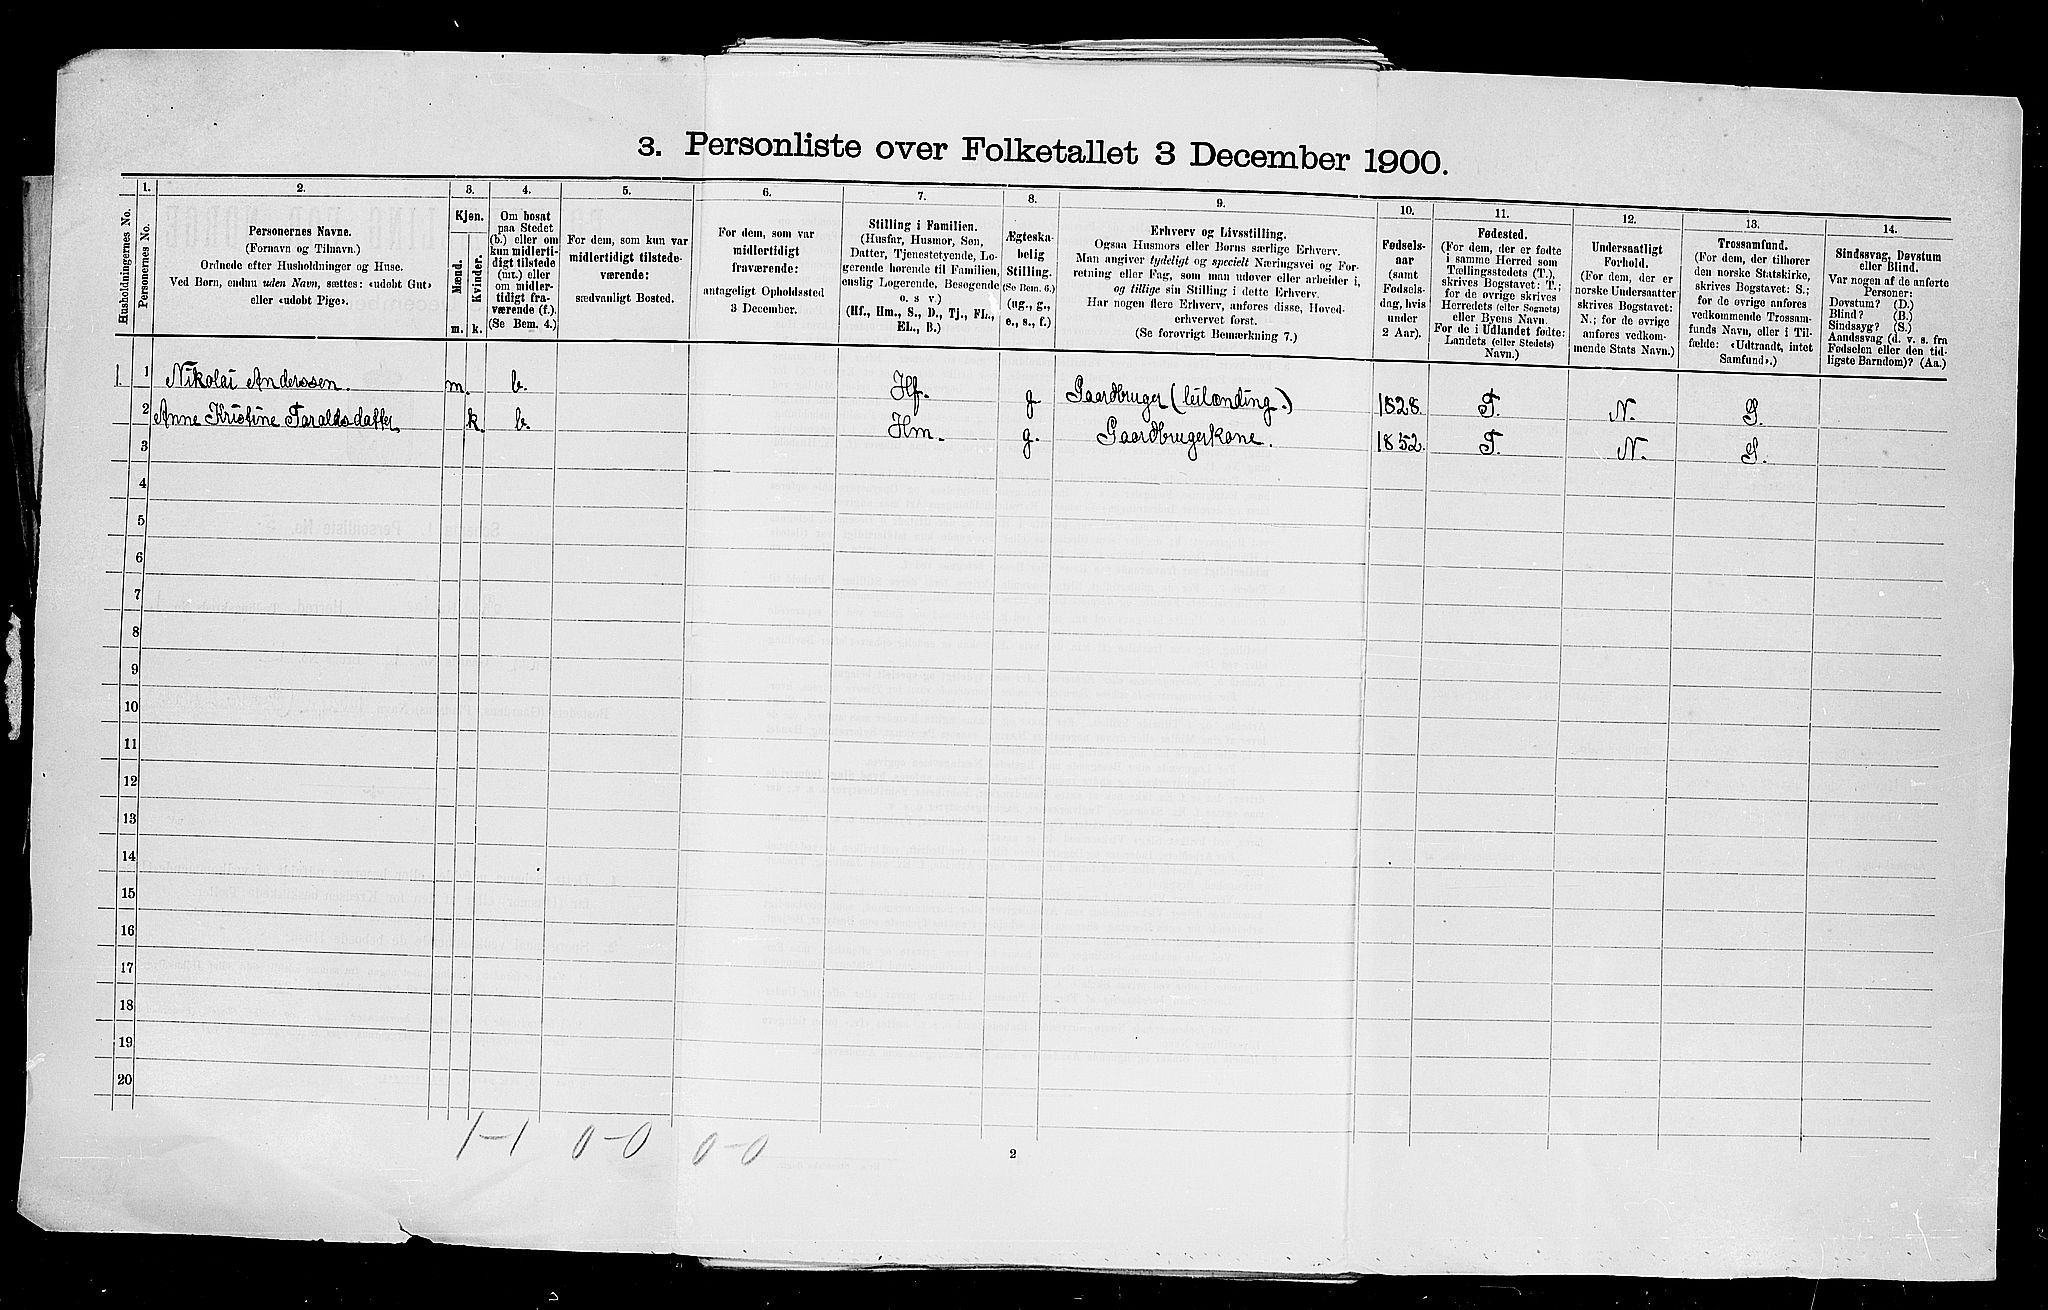 3. Personliste over Folketallet 3 December 1900.
1. 2. 3. 4. 5. 6. 7. 8. 9. 10. 11. 12. 13. 14.
Husholdningernes No.
Personernes No.
Personernes Navne.
(Fornavn og Tilnavn.)
Ordnede efter Husholdninger og Huse.
Ved Børn, endnu uden Navn, sættes: «udøbt Gut»
eller «udøbt Pige».
Kjøn.
Mænd.
Kvinder.
m. k.
Om bosat
paa Stedet
(b.) eller om
kun midlerti-
digt tilstede
(mt.) eller
om midler-
tidigt fra-
værende (f.).
(Se Bem. 4.)
For dem, som kun var
midlertidigt tilstede-
værende:
sædvanligt Bosted.
For dem, som var
midlertidigt
fraværende:
antageligt Opholdssted
3 December.
Stilling i Familien.
(Husfar, Husmor, Søn,
Datter, Tjenestetyende, Lo-
gerende hørende til Familien,
enslig Logerende, Besøgende
o. s v.)
(Hf., Hm., S., D., Tj., FL.,
EL., B.)
Ægteska-
belig
Stilling.
(Se Bem. 6.)
(ug., g.,
e., s., f.)
Erhverv og Livsstilling.
Ogsaa Husmors eller Børns særlige Erhverv.
Man angiver tydeligt og specielt Næringsvei og For-
retning eller Fag, som man udøver eller arbeider i,
og tillige sin Stilling i dette Erhverv.
Har nogen flere Erhverv, anføres disse, Hoved-
erhvervet først.
(Se forøvrigt Bemærkning 7.)
Fødsels-
aar
(samt
Fødsels-
dag, hvis
under
2 Aar).
Fødested.
(For dem, der er fødte
i samme Herred som
Tællingsstedets (T.),
skrives Bogstavet: T.;
for de øvrige skrives
Herredets (eller Sognets)
eller Byens Navn.
For de i Udlandet fødte:
Landets (eller Stedets)
Navn.)
Undersaatligt
Forhold.
(For dem, der er
norske Undersaatter
skrives Bogstavet:
N.; for de øvrige
anføres vedkom-
mende Stats Navn.)
Trossamfund.
(For dem, der tilhører
den norske Statskirke,
skrives Bogstavet: S.;
for de øvrige anføres
vedkommende Trossam-
funds Navn, eller i Til-
fælde: «Udtraadt, intet
Samfund».)
Sindssvag, Døvstum
eller Blind.
Var nogen af de anførte
Personer:
Døvstum? (D.)
Blind? (B.)
Sindssyg? (S.)
Aandssvag (d. v. s. fra
Fødselen eller den tid-
ligste Barndom)? (Aa.)
1. 1 Nikolai Anderssen. m. b. Hf. g. Gaardbruger (leilænding.) 1828. T. N. S.
2 Anne Kristine Taraldsdatter k. b. Hm. g. Gaardbrugerkone. 1852. T. N. S.
3
4
5
6
7
8
9
10
11
12
13
14
15
16
17
18
19
20
1-1 0-0 0-0
2